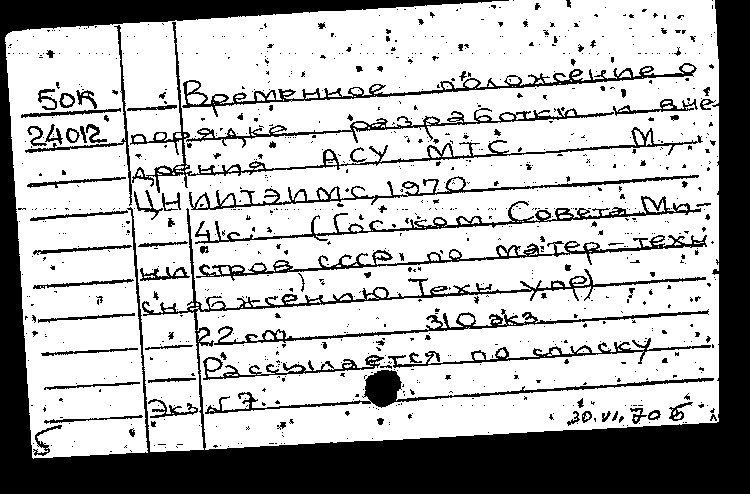 50К Временное положение о
24012 порядке разработки и вне
дрения АСУ МТС. М.,
ЦНИИТЭИМС, 1970
41с. (Гос. ком. Совета Ми-
нистров СССР по матер-техн
снабжению. Техн. упр)
22 см 310 экз.
Рассылается по списку
Экз № 7.
30.VI.70